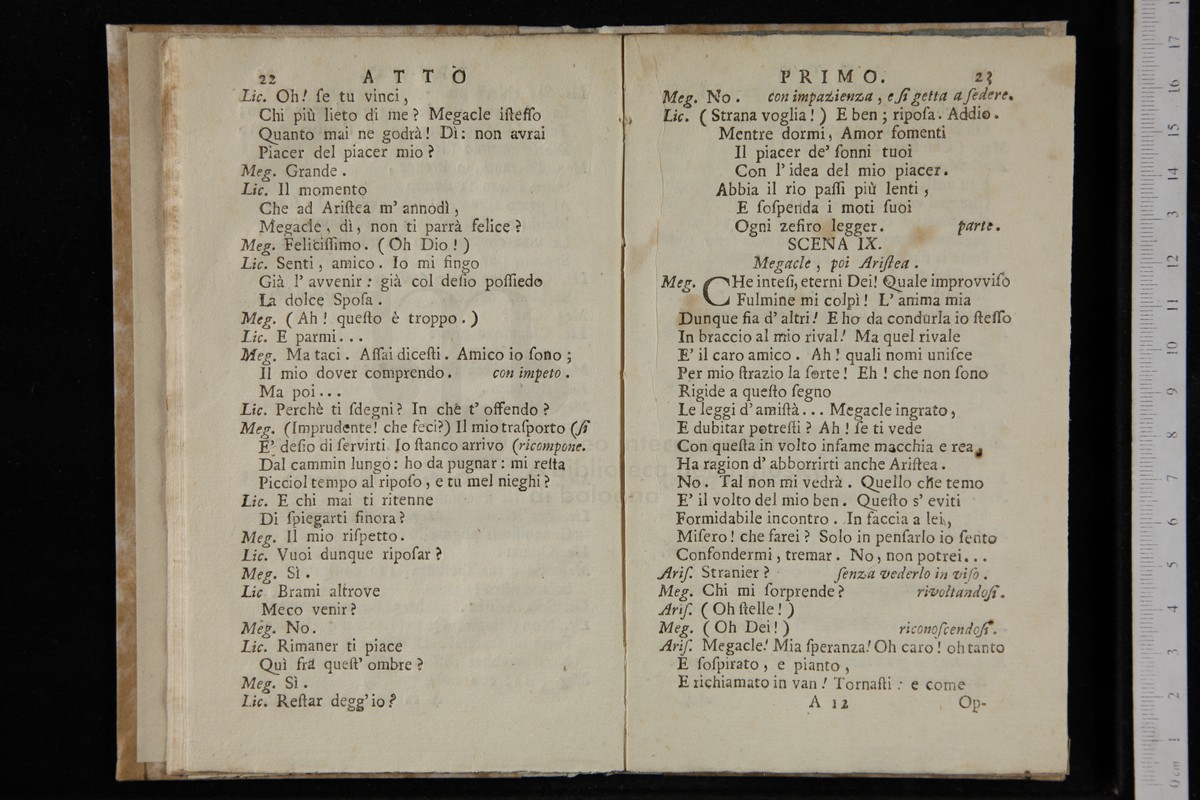 22 ATTO
Lic. Oh! ſe tu vinci,
Chi più lieto di me? Megacle iſteſſo
Quanto mai ne godrà! Dì: non avrai
Piacer del piacer mio?
Meg. Grande.
Lic. Il momento
Che ad Ariſtea m' annodì,
Megacle, dì, non ti parrà felice?
Meg. Feliciſſimo. (Oh Dio!)
Lic. Senti, amico. Io mi fingo
Già l' avvenir: già col deſio poſſiedo
La dolce Spoſa.
Meg. (Ah! queſto è troppo.)
Lic. E parmi...
Meg. Ma taci. Aſſai diceſti. Amico io ſono;
Il mio dover comprendo. con impeto.
Ma poi...
Lic. Perchè ti ſdegni? In che t' offendo?
Meg. (Imprudente! che feci?) Il mio traſporto (ſi
E' deſio di ſervirti. Io ſtanco arrivo (ricompone.
Dal cammin lungo: ho da pugnar: mi reſta
Picciol tempo al ripoſo, e tu mel nieghi?
Lic. E chi mai ti ritenne
Di ſpiegarti finora?
Meg. Il mio riſpetto.
Lic. Vuoi dunque ripoſar?
Meg. Sì.
Lic Brami altrove
Meco venir?
Meg. No.
Lic. Rimaner ti piace
Quì frà queſt' ombre?
Meg. Sì.
Lic. Reſtar degg' io?
PRIMO. 23
Meg. No. con impazienza, e ſi getta a ſedere.
Lic. (Strana voglia!) E ben; ripoſa. Addio.
Mentre dormi, Amor fomenti
Il piacer de' ſonni tuoi
Con l' idea del mio piacer.
Abbia il rio paſſi più lenti,
E ſoſpenda i moti ſuoi
Ogni zefiro legger. parte.
SCENA IX.
Megacle, poi Ariſtea.
Meg. CHe inteſi, eterni Dei! Quale improvviſo
Fulmine mi colpì! L' anima mia
Dunque fia d' altri! E ho da condurla io ſteſſo
In braccio al mio rival! Ma quel rivale
E' il caro amico. Ah! quali nomi uniſce
Per mio ſtrazio la ſorte! Eh! che non ſono
Rigide a queſto ſegno
Le leggi d' amiſtà... Megacle ingrato,
E dubitar potreſti? Ah! ſe ti vede
Con queſta in volto infame macchia e rea,
Ha ragion d' abborrirti anche Ariſtea.
No. Tal non mi vedrà. Quello che temo
E' il volto del mio ben. Queſto s' eviti
Formidabile incontro. In faccia a lei,
Miſero! che farei? Solo in penſarlo io ſento
Confondermi, tremar. No, non potrei...
Ariſ. Stranier? ſenza vederlo in viſo.
Meg. Chi mi ſorprende? rivoltandoſi.
Ariſ. (Oh ſtelle!)
Meg. (Oh Dei!) riconoſcendoſi.
Ariſ. Megacle! Mia ſperanza! Oh caro! oh tanto
E ſoſpirato, e pianto,
E richiamato in van! Tornaſti: e come
A 12 Op-